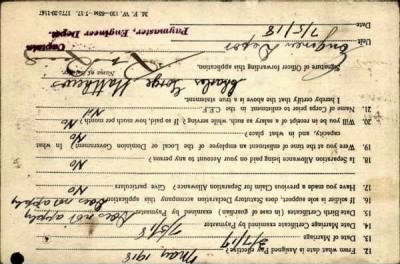 12. From what date is Assigned Pay effective? May 1918
13. Date of Marriage 3/7/17
14. Date Marriage Certificate examined by Paymaster 7/5/18
15. Date Birth Certificates (in case of guardian) examined by Paymaster Does not apply
16. If soldier is sole support, does Statutory Declaration accompany this application? Does not apply
17. Have you made a previous Claim for Separation Allowance? Give particulars No
18. Is Separation Allowance being paid on your Account to any Person? No
19. Were you at the time of enlistment an employee of the Local or Dominion Government? In what
capacity, and in what place? No
20. Will you be in receipt of a salary as such, while serving? If so paid, how much per month? No
21. Name of Corps prior to enlistment in the C.E.F. Nil
I hereby certify that the above is a true statement.
Charles George Matthews
Signature of Officer forwarding application.
Captain
Unit Engineer Depot
Paymaster, Engineer Depot.
Date 7/5/18